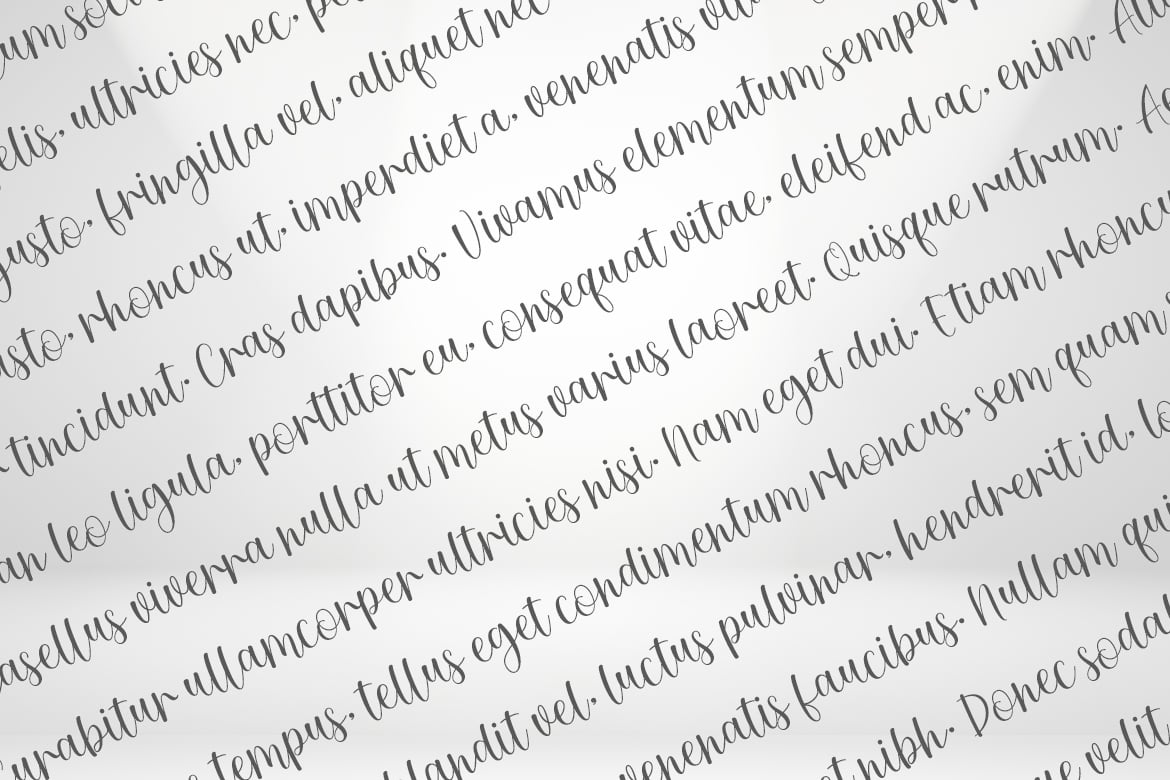 cum soc
elis, ultricies nec, pe
justo, fringilla vel, aliquet nec
usto, rhoncus ut, imperdiet a, venenatis vita
tincidunt. Cras dapibus. Vivamus elementum semper
an leo ligula, porttitor eu, consequat vitae, eleifend ac, enim. Aliq
asellus viverra nulla ut metus varius laoreet. Quisque rutrum. Ae
urabitur ullamcorper ultricies nisi. Nam eget dui. Etiam rhoncu
tempus, tellus eget condimentum rhoncus, sem quam
landit vel, luctus pulvinar, hendrerit id, lo
venenatis faucibus. Nullam qui
t nibh. Donec sodal
ue velit